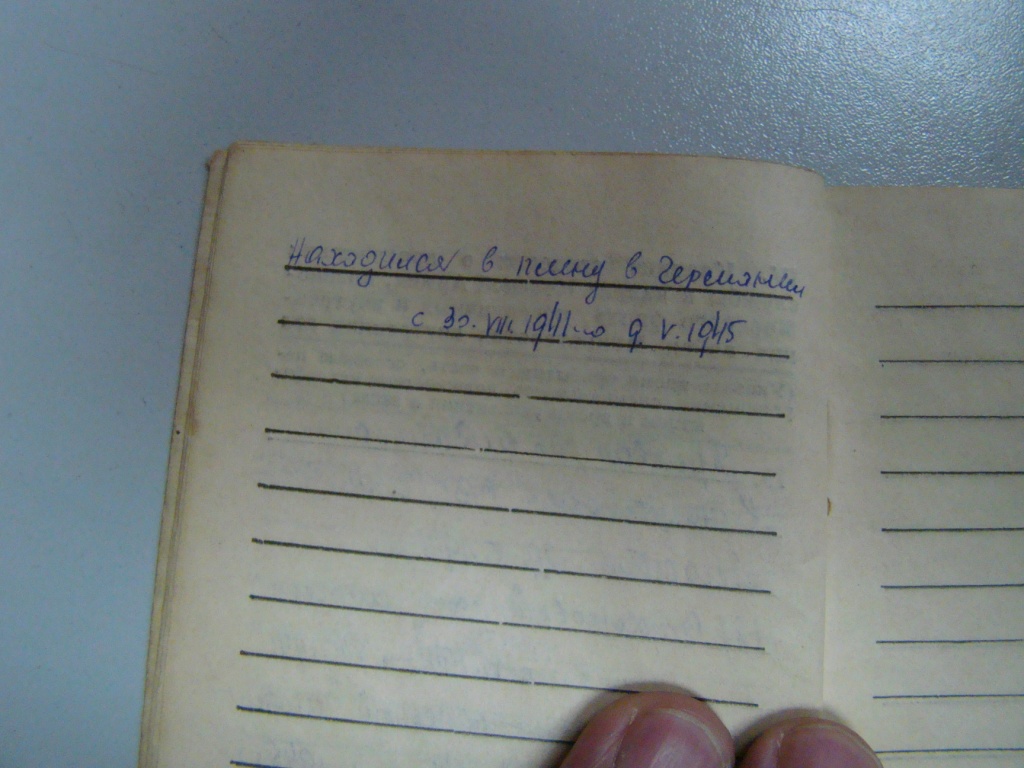 Находился в плену в Германии
с 30. VIII. 1941 по 9. V. 1945